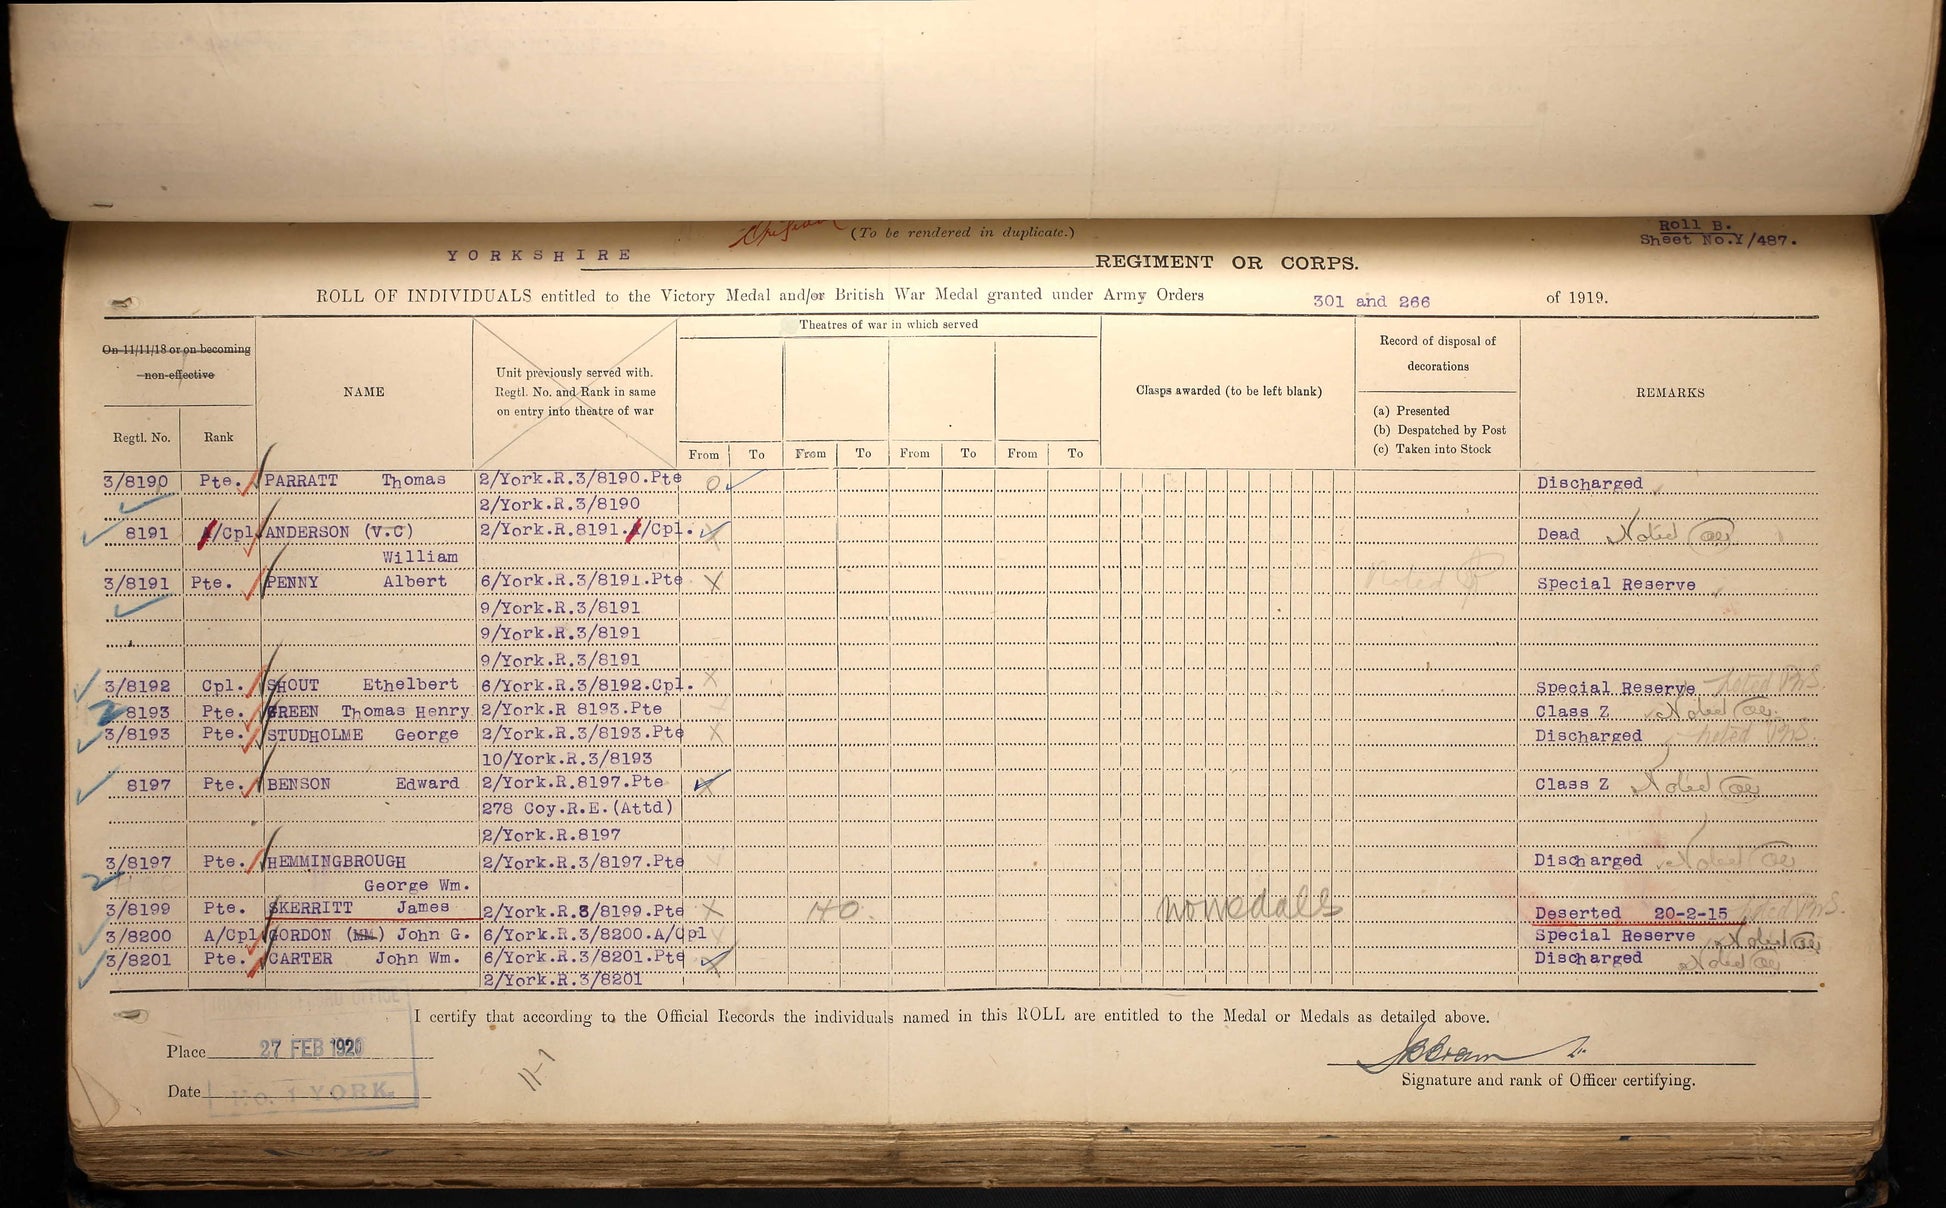 (To be rendered in duplicate.)
Roll B.
Sheet No.Y/487.
YORKSHIRE REGIMENT OR CORPS.
ROLL OF INDIVIDUALS entitled to the Victory Medal and/or British War Medal granted under Army Orders 301 and 266 of 1919.
On 11/11/18 or on becoming
non-effective
Regtl. No.
Rank
NAME
Unit previously served with.
Regtl. No. and Rank in same
on entry into theatre of war
Theatres of war in which served
From To From To From To From To
Clasps awarded (to be left blank)
Record of disposal of
decorations
(a) Presented
(b) Despatched by Post
(c) Taken into Stock
REMARKS
3/8190 Pte. PARRATT Thomas 2/York.R.3/8190.Pte O Discharged
2/York.R.3/8190
8191 /Cpl ANDERSON (V.C) 2/York.R.8191. /Cpl. X Dead Noted
William
3/8191 Pte. PENNY Albert 6/York.R.3/8191.Pte X Noted Special Reserve
9/York.R.3/8191
9/York.R.3/8191
9/York.R.3/8191
3/8192 Cpl. SHOUT Ethelbert 6/York.R.3/8192.Cpl. X Special Reserve Noted
8193 Pte. GREEN Thomas Henry 2/York.R 8193.Pte Class Z Noted
3/8193 Pte. STUDHOLME George 2/York.R.3/8193.Pte X Discharged Noted
10/York.R.3/8193
8197 Pte. BENSON Edward 2/York.R.8197.Pte X Class Z Noted
278 Coy.R.E.(Attd)
2/York.R.8197
3/8197 Pte. HEMMINGBROUGH 2/York.R.3/8197.Pte Discharged Noted
George Wm.
3/8199 Pte. SKERRITT James 2/York.R.3/8199.Pte X HO. no medals Deserted 20-2-15
3/8200 A/Cpl GORDON (MM) John G. 6/York.R.3/8200.A/Cpl Special Reserve Noted
3/8201 Pte. CARTER John Wm. 6/York.R.3/8201.Pte X Discharged Noted
2/York.R.3/8201
I certify that according to the Official Records the individuals named in this ROLL are entitled to the Medal or Medals as detailed above.
Place 27 FEB 1920
11-1
Signature and rank of Officer certifying.
Date No. 1 YORK.